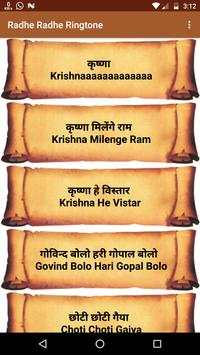 3:12
Radhe Radhe Ringtone
कृष्णा
Krishnaaaaaaaaaaaaa
कृष्णा मिलेंगे राम
Krishna Milenge Ram
कृष्णा हे विस्तार
Krishna He Vistar
गोविन्द बोलो हरी गोपाल बोलो
Govind Bolo Hari Gopal Bolo
छोटी छोटी गैया
Choti Choti Gaiya